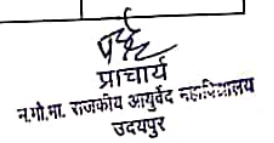 प्राचार्य
न.गो.मा. राजकीय आयुर्वेद महाविद्यालय
उदयपुर